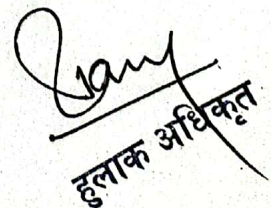 हुलाक अधिकृत